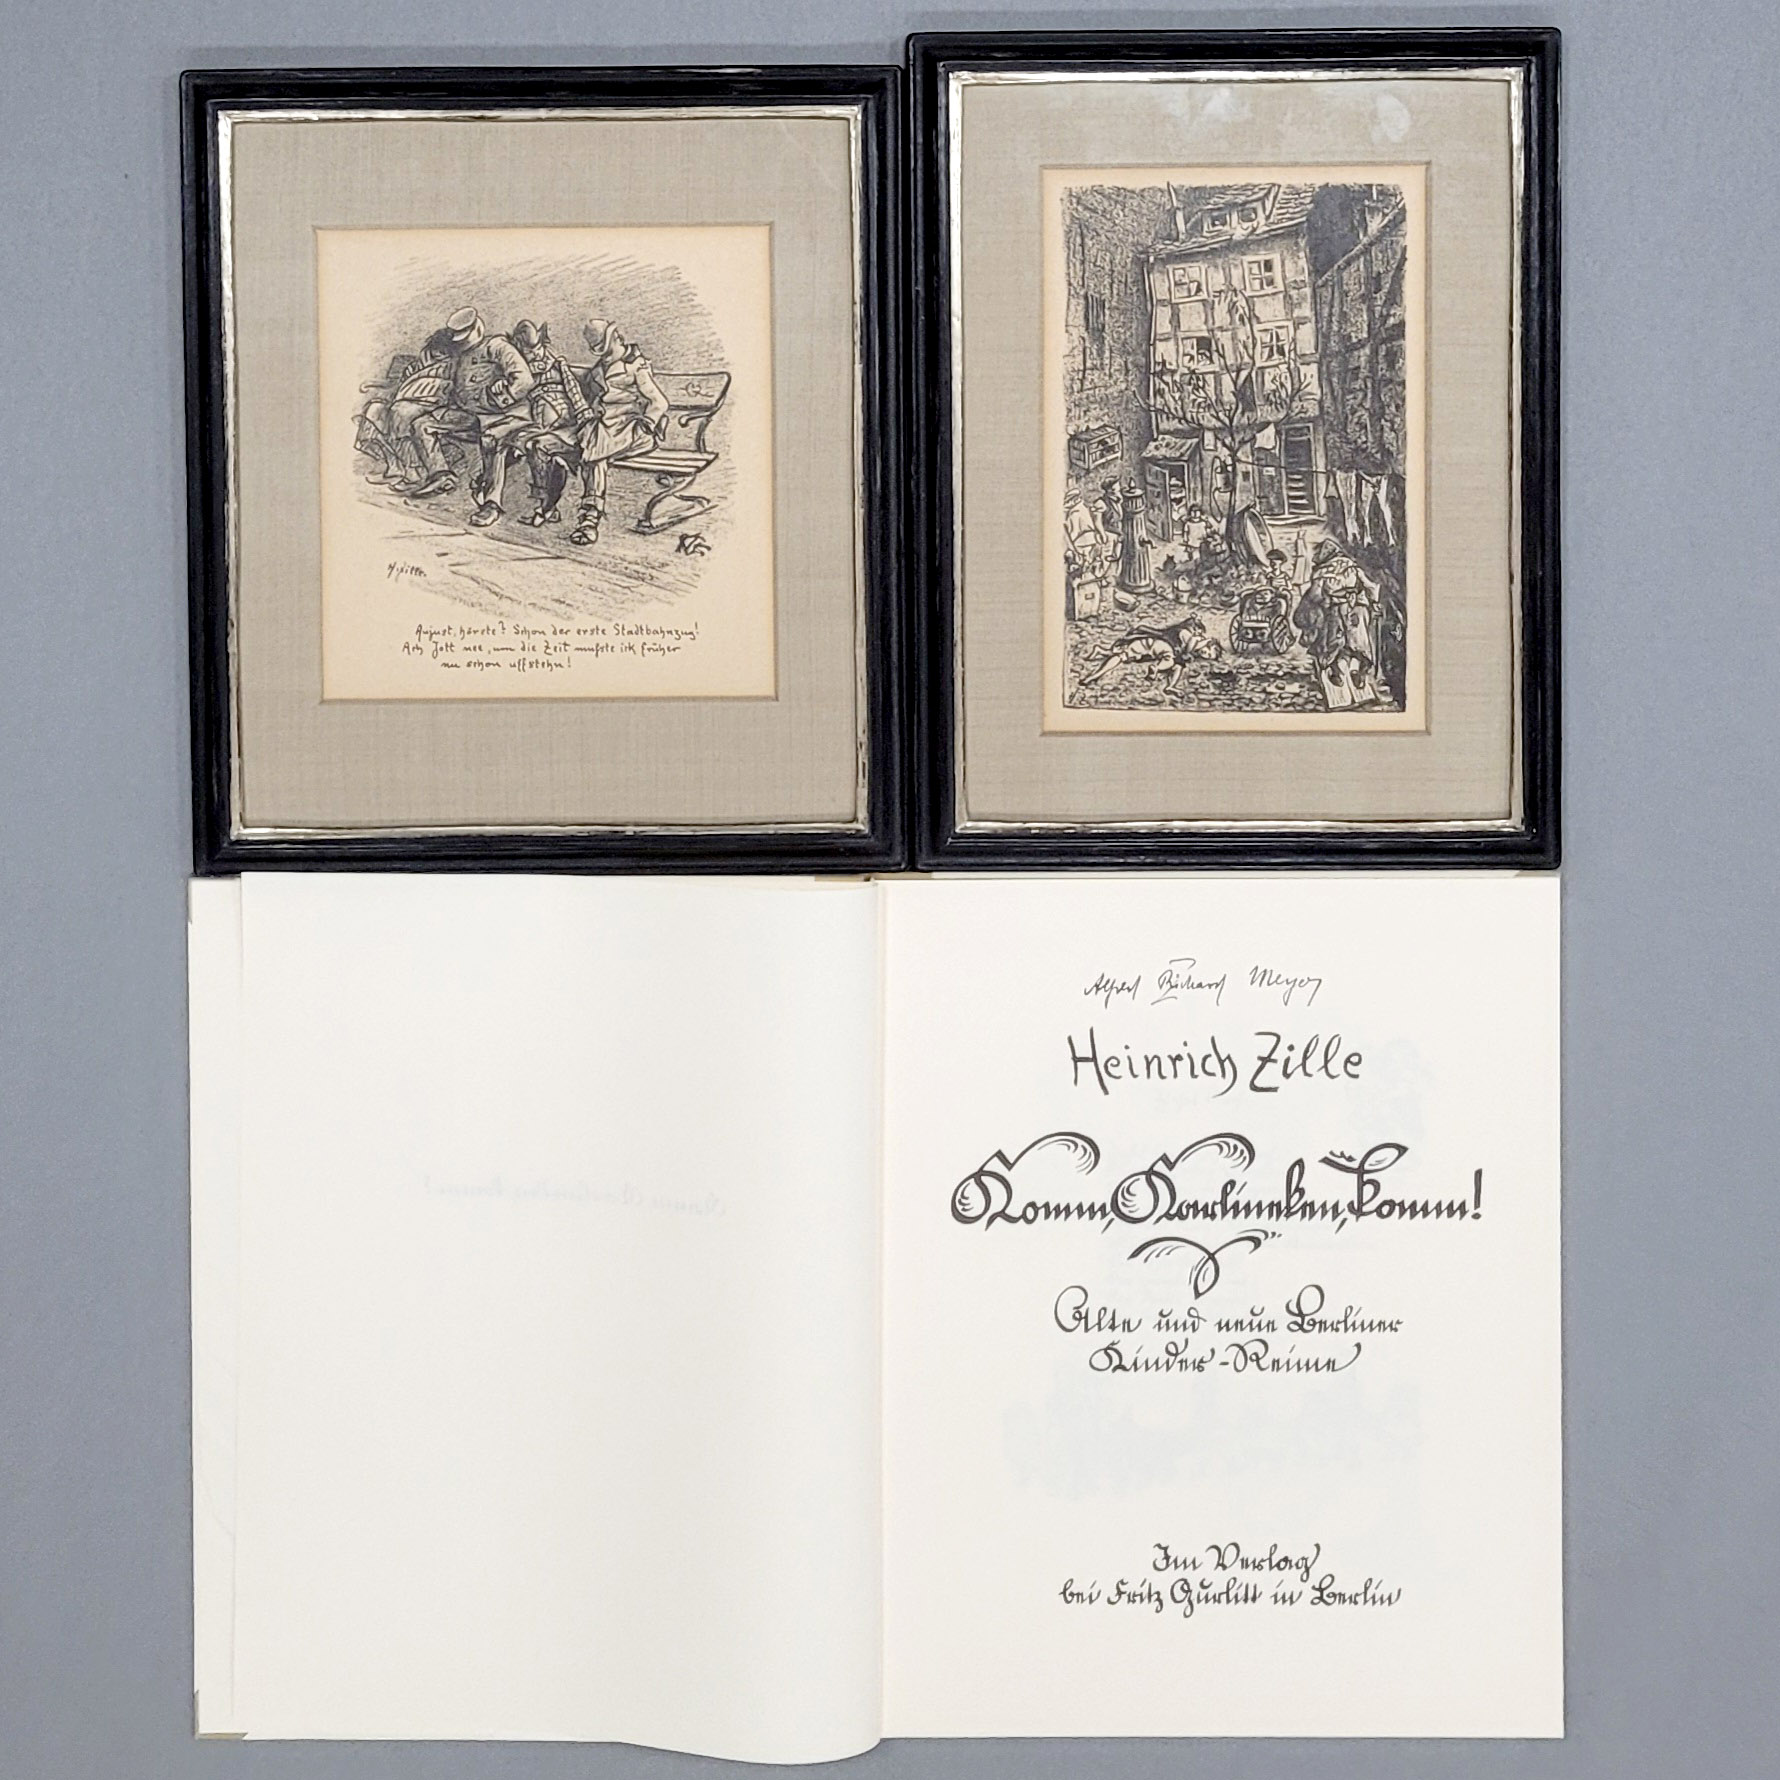 H. Zille.
August, hörste? Schon der erste Stadtbahnzug!
Ach Jott nee, um die Zeit mußte ick früher
nu schon uffstehn!
Alfred Richard Meyer
Heinrich Zille
Komm, Karlineken, komm!
Alte und neue Berliner
Kinder-Reime
Im Verlag
bei Fritz Gurlitt in Berlin